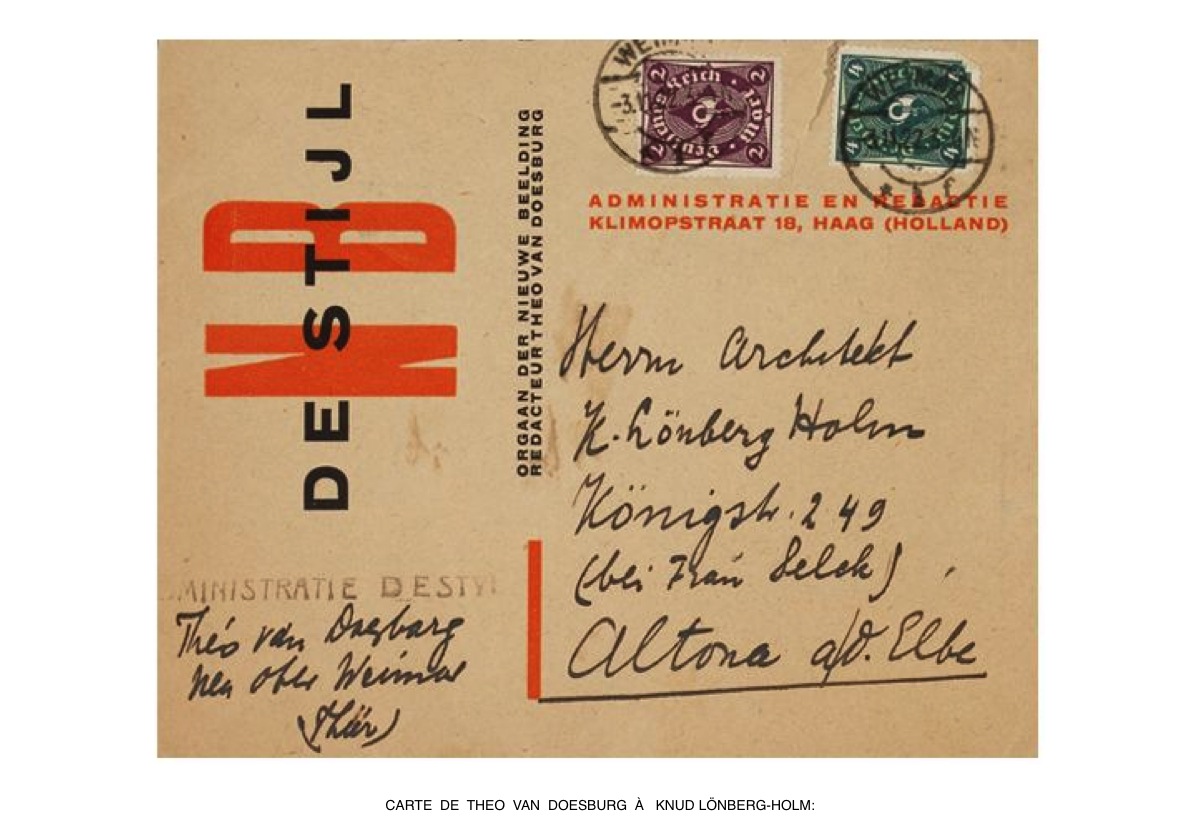 DE STIJL
NB
ORGAAN DER NIEUWE BEELDING
REDACTEUR THEO VAN DOESBURG
2 Deutsches Reich 2
2 Mark 2
4 4
4 4
WEIMAR
ADMINISTRATIE EN REDACTIE
KLIMOPSTRAAT 18, HAAG (HOLLAND)
Herrn Architekt
K. Lönberg Holm
Königstr. 249
(bei Frau Selck)
Altona a/d. Elbe
MINISTRATIE DESTYL
Théo van Doesburg
Ober Weimar
(Thür)
CARTE DE THEO VAN DOESBURG À KNUD LÖNBERG-HOLM: